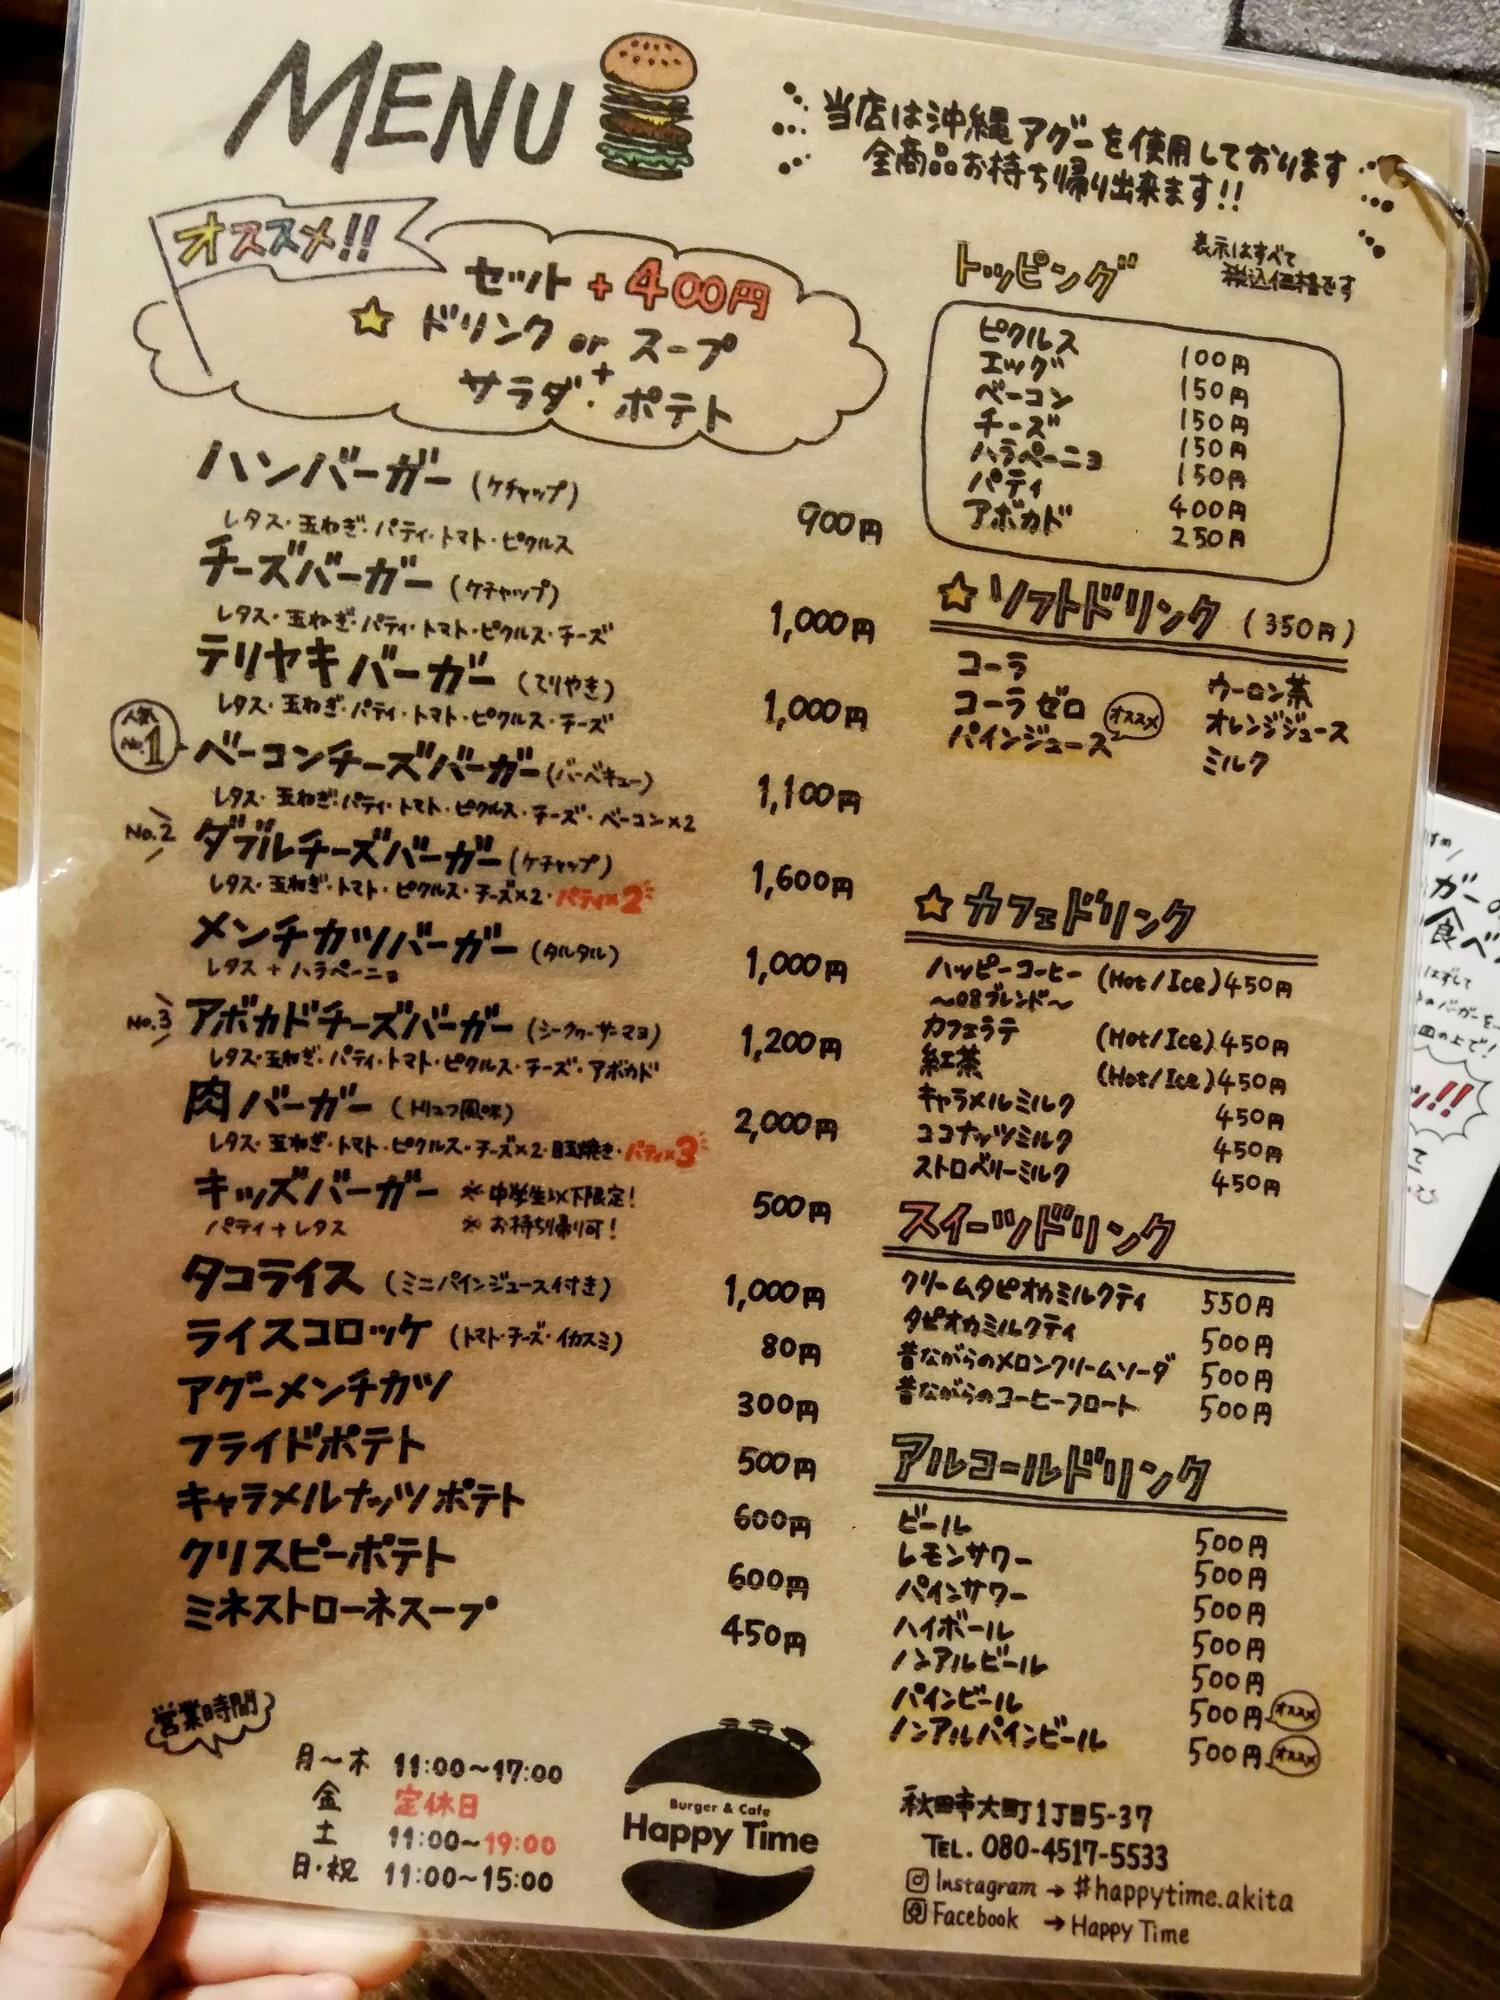 MENU
当店は沖縄アグーを使用しております
全商品お持ち帰り出来ます!!
オススメ!!
セット+400円
ドリンク or スープ
+
サラダ・ポテト
ハンバーガー (ケチャップ) 900円
レタス・玉ねぎ・パティ・トマト・ピクルス
チーズバーガー (ケチャップ) 1,000円
レタス・玉ねぎ・パティ・トマト・ピクルス・チーズ
テリヤキバーガー (てりやき) 1,000円
レタス・玉ねぎ・パティ・トマト・ピクルス・チーズ
人気No.1 ベーコンチーズバーガー (バーベキュー) 1,100円
レタス・玉ねぎ・パティ・トマト・ピクルス・チーズ・ベーコン×2
No.2 ダブルチーズバーガー (ケチャップ) 1,600円
レタス・玉ねぎ・トマト・ピクルス・チーズ×2・パティ×2
メンチカツバーガー (タルタル) 1,000円
レタス+ハラペーニョ
No.3 アボカドチーズバーガー (シークヮーサーマヨ) 1,200円
レタス・玉ねぎ・パティ・トマト・ピクルス・チーズ・アボカド
肉バーガー (トリュフ風味) 2,000円
レタス・玉ねぎ・トマト・ピクルス・チーズ×2・目玉焼き・パティ×3
キッズバーガー ※中学生以下限定! 500円
パティ+レタス ※お持ち帰り可!
タコライス (ミニパインジュース付き) 1,000円
ライスコロッケ (トマト・チーズ・イカスミ) 80円
アグーメンチカツ 300円
フライドポテト 500円
キャラメルナッツポテト 600円
クリスピーポテト 600円
ミネストローネスープ 450円
営業時間
月〜木 11:00〜17:00
金 定休日
土 11:00〜19:00
日・祝 11:00〜15:00
Burger & Cafe
Happy Time
トッピング
表示はすべて
税込価格です
ピクルス 100円
エッグ 150円
ベーコン 150円
チーズ 150円
ハラペーニョ 150円
パティ 400円
アボカド 250円
ソフトドリンク (350円)
コーラ ウーロン茶
コーラゼロ オレンジジュース
パインジュース オススメ ミルク
カフェドリンク
ハッピーコーヒー (Hot/Ice) 450円
〜08ブレンド〜
カフェラテ (Hot/Ice) 450円
紅茶 (Hot/Ice) 450円
キャラメルミルク 450円
ココナッツミルク 450円
ストロベリーミルク 450円
スイーツドリンク
クリームタピオカミルクティ 550円
タピオカミルクティ 500円
昔ながらのメロンクリームソーダ 500円
昔ながらのコーヒーフロート 500円
アルコールドリンク
ビール 500円
レモンサワー 500円
パインサワー 500円
ハイボール 500円
ノンアルビール 500円
パインビール 500円 オススメ
ノンアルパインビール 500円 オススメ
秋田市大町1丁目5-37
TEL. 080-4517-5533
Instagram → #happytime.akita
Facebook → Happy Time